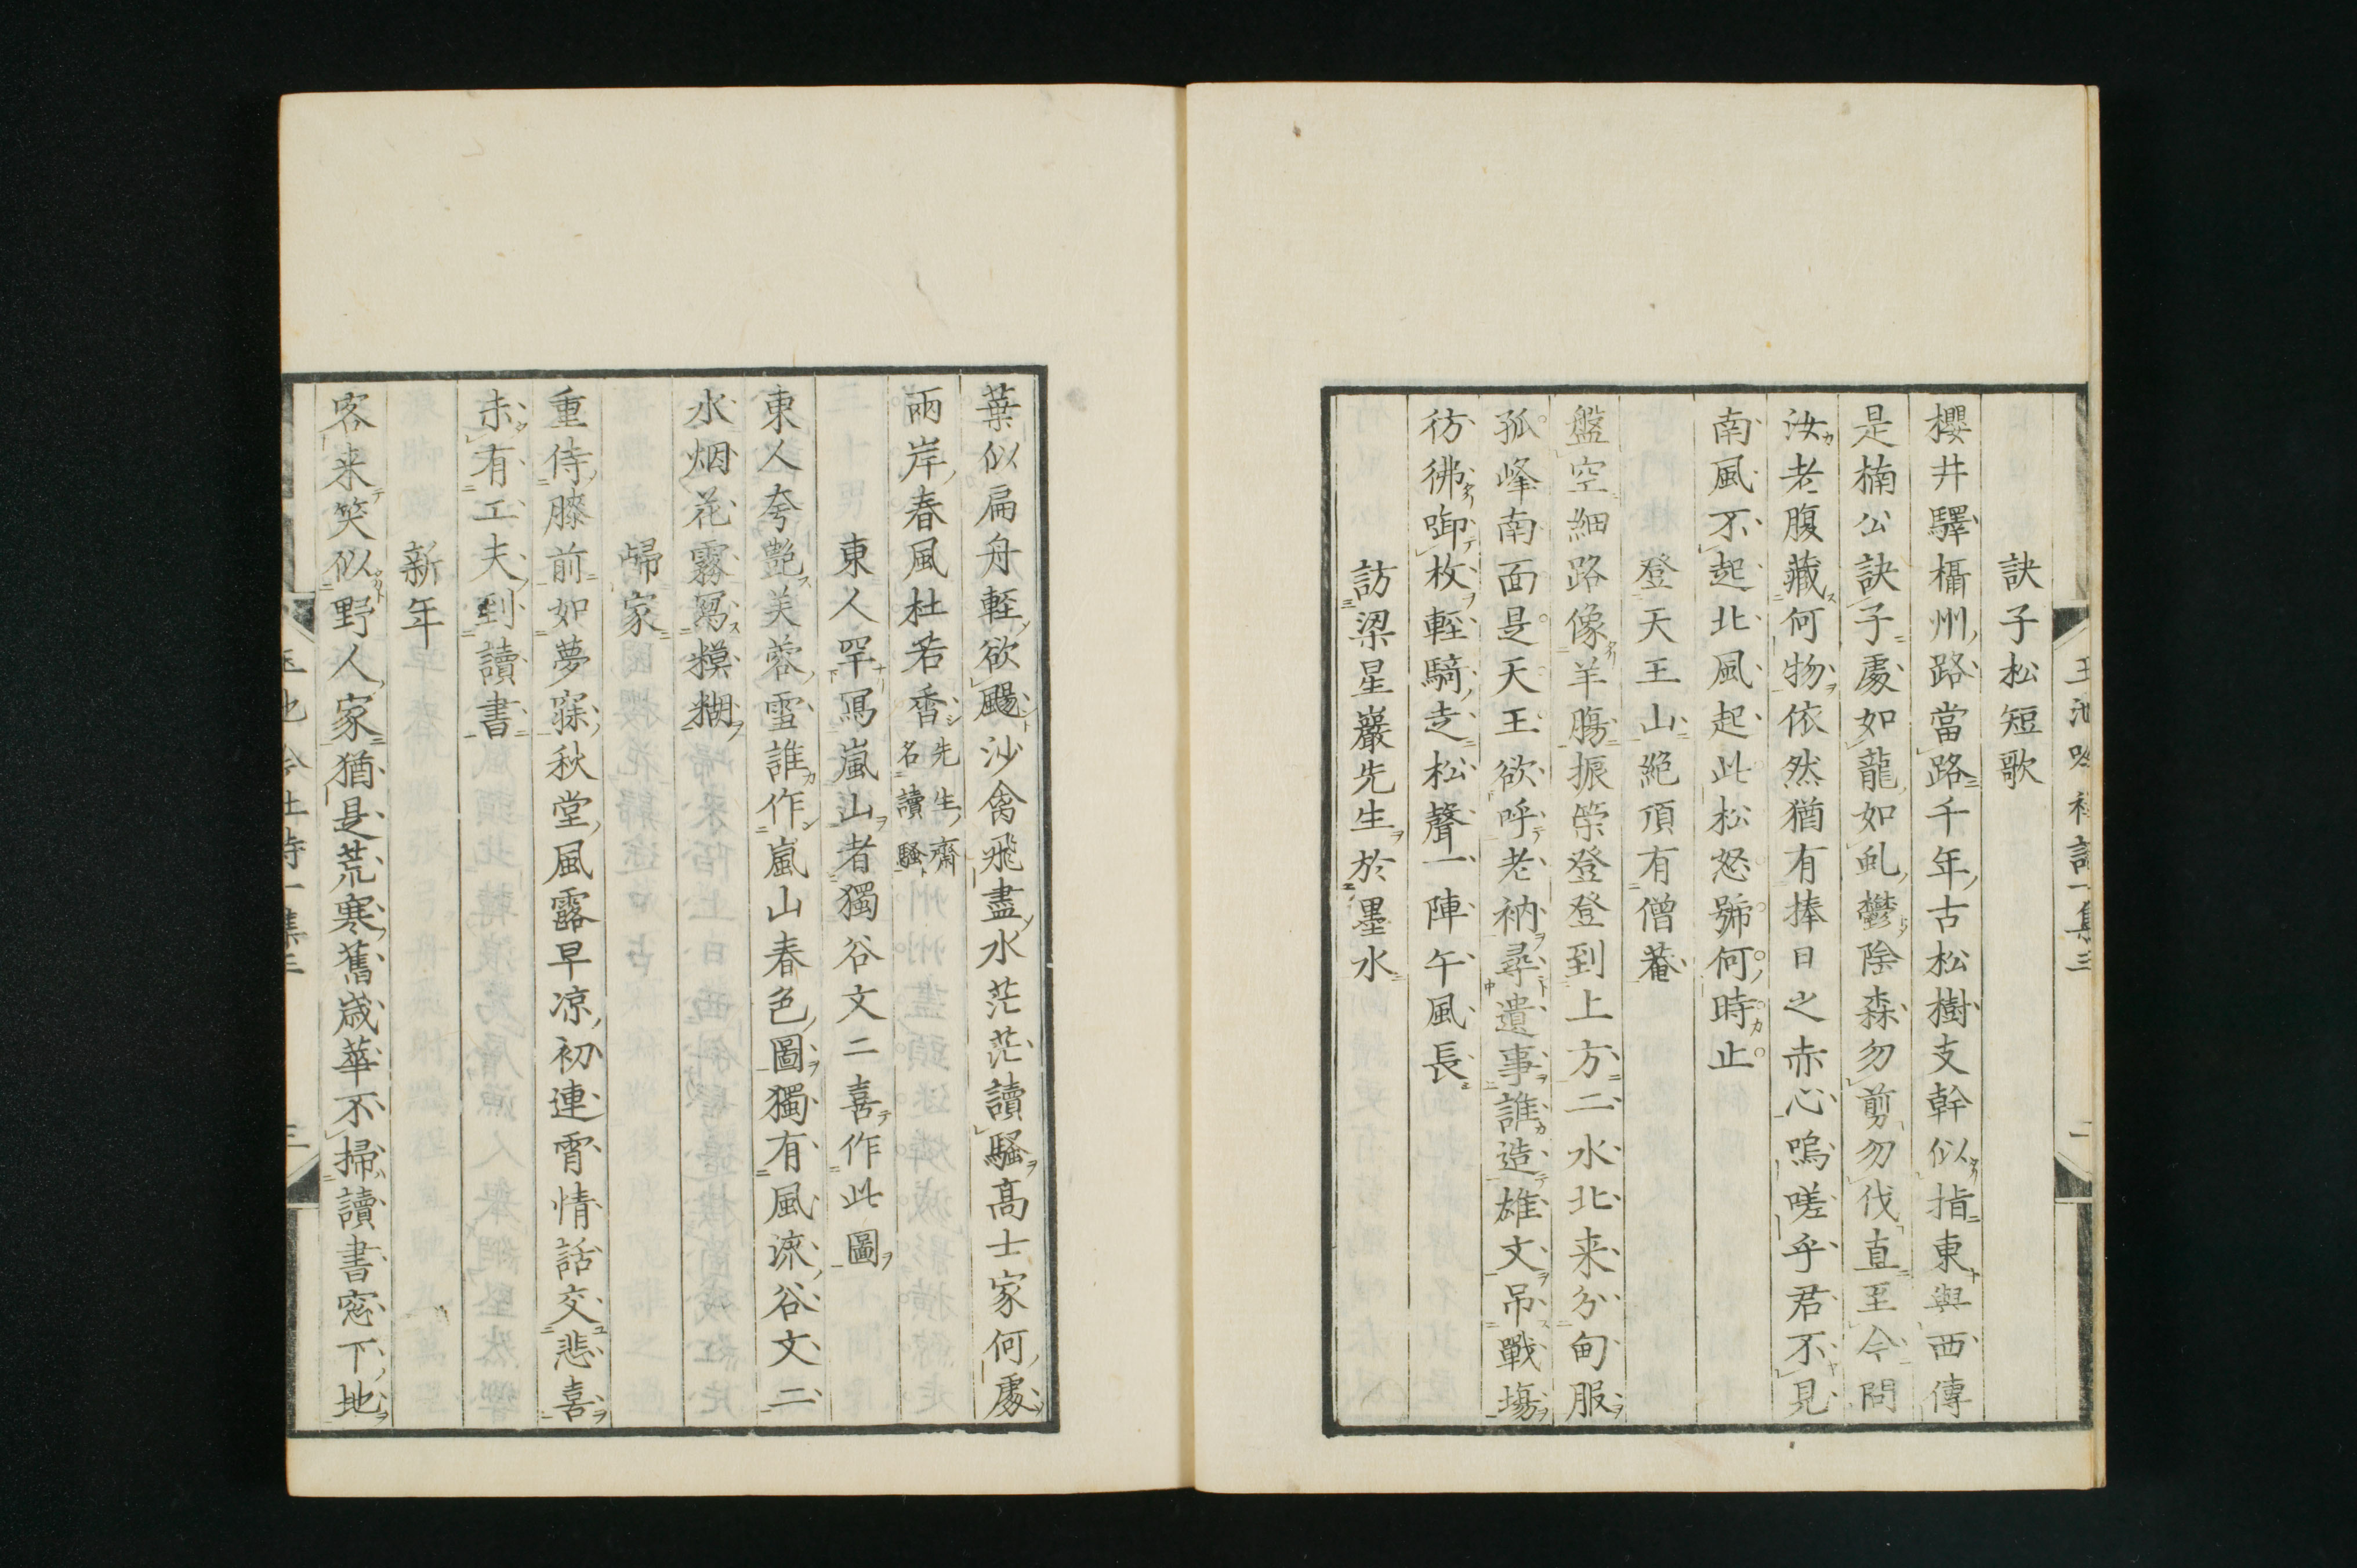 訣子松短歌
櫻井驛攝州路當路千年古松樹支幹似指東與西傳
是楠公訣子處如龍如虬鬱陰森勿剪勿伐直至今問
汝老腹藏何物依然猶有捧日之赤心嗚嗟乎君不見
南風不起北風起此松怒號何時止
登天王山絶頂有僧菴
盤空細路像羊膓振策登登到上方二水北来分甸服
孤峰南面是天王欲呼老衲尋遺事誰造雄文吊戰塲
彷彿啣枚輕騎走松聲一陣午風長
訪梁星巖先生於墨水
葉似扁舟輕欲颺沙禽飛盡水茫茫讀騷高士家何處
兩岸春風杜若香先生齋名讀騷
東人罕冩嵐山者獨谷文二喜作此圖
東人夸艶芙蓉雪誰作嵐山春色圖獨有風流谷文二
水烟花霧冩糢糊
歸家
重侍膝前如夢寐秋堂風露早凉初連宵情話交悲喜
未有工夫到讀書
新年
客来笑似野人家猶是荒寒舊歳華不掃讀書窓下地